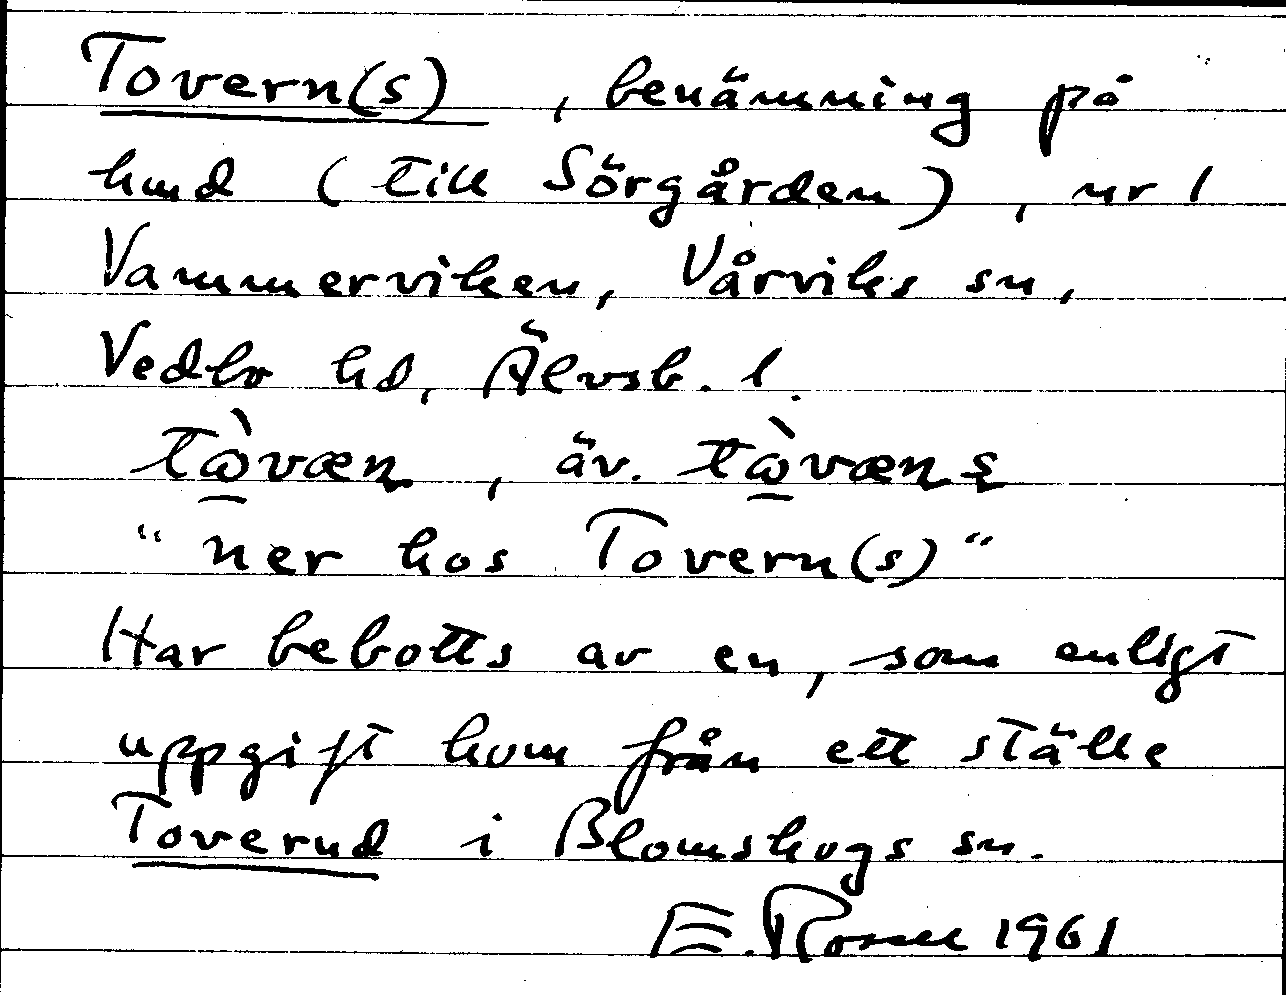 Tovern(s), benämning på
hmd (till Sörgården), nr 1
Vammerviken, Vårviks sn,
Vedbo hd, Älvsb. l.
tɷ̀væn, äv. tɷ̀væns
"ner hos Tovern(s)"
Har bebotts av en, som enligt
uppgift kom från ett ställe
Toverud i Blomskogs sn.
E. Rosell 1961